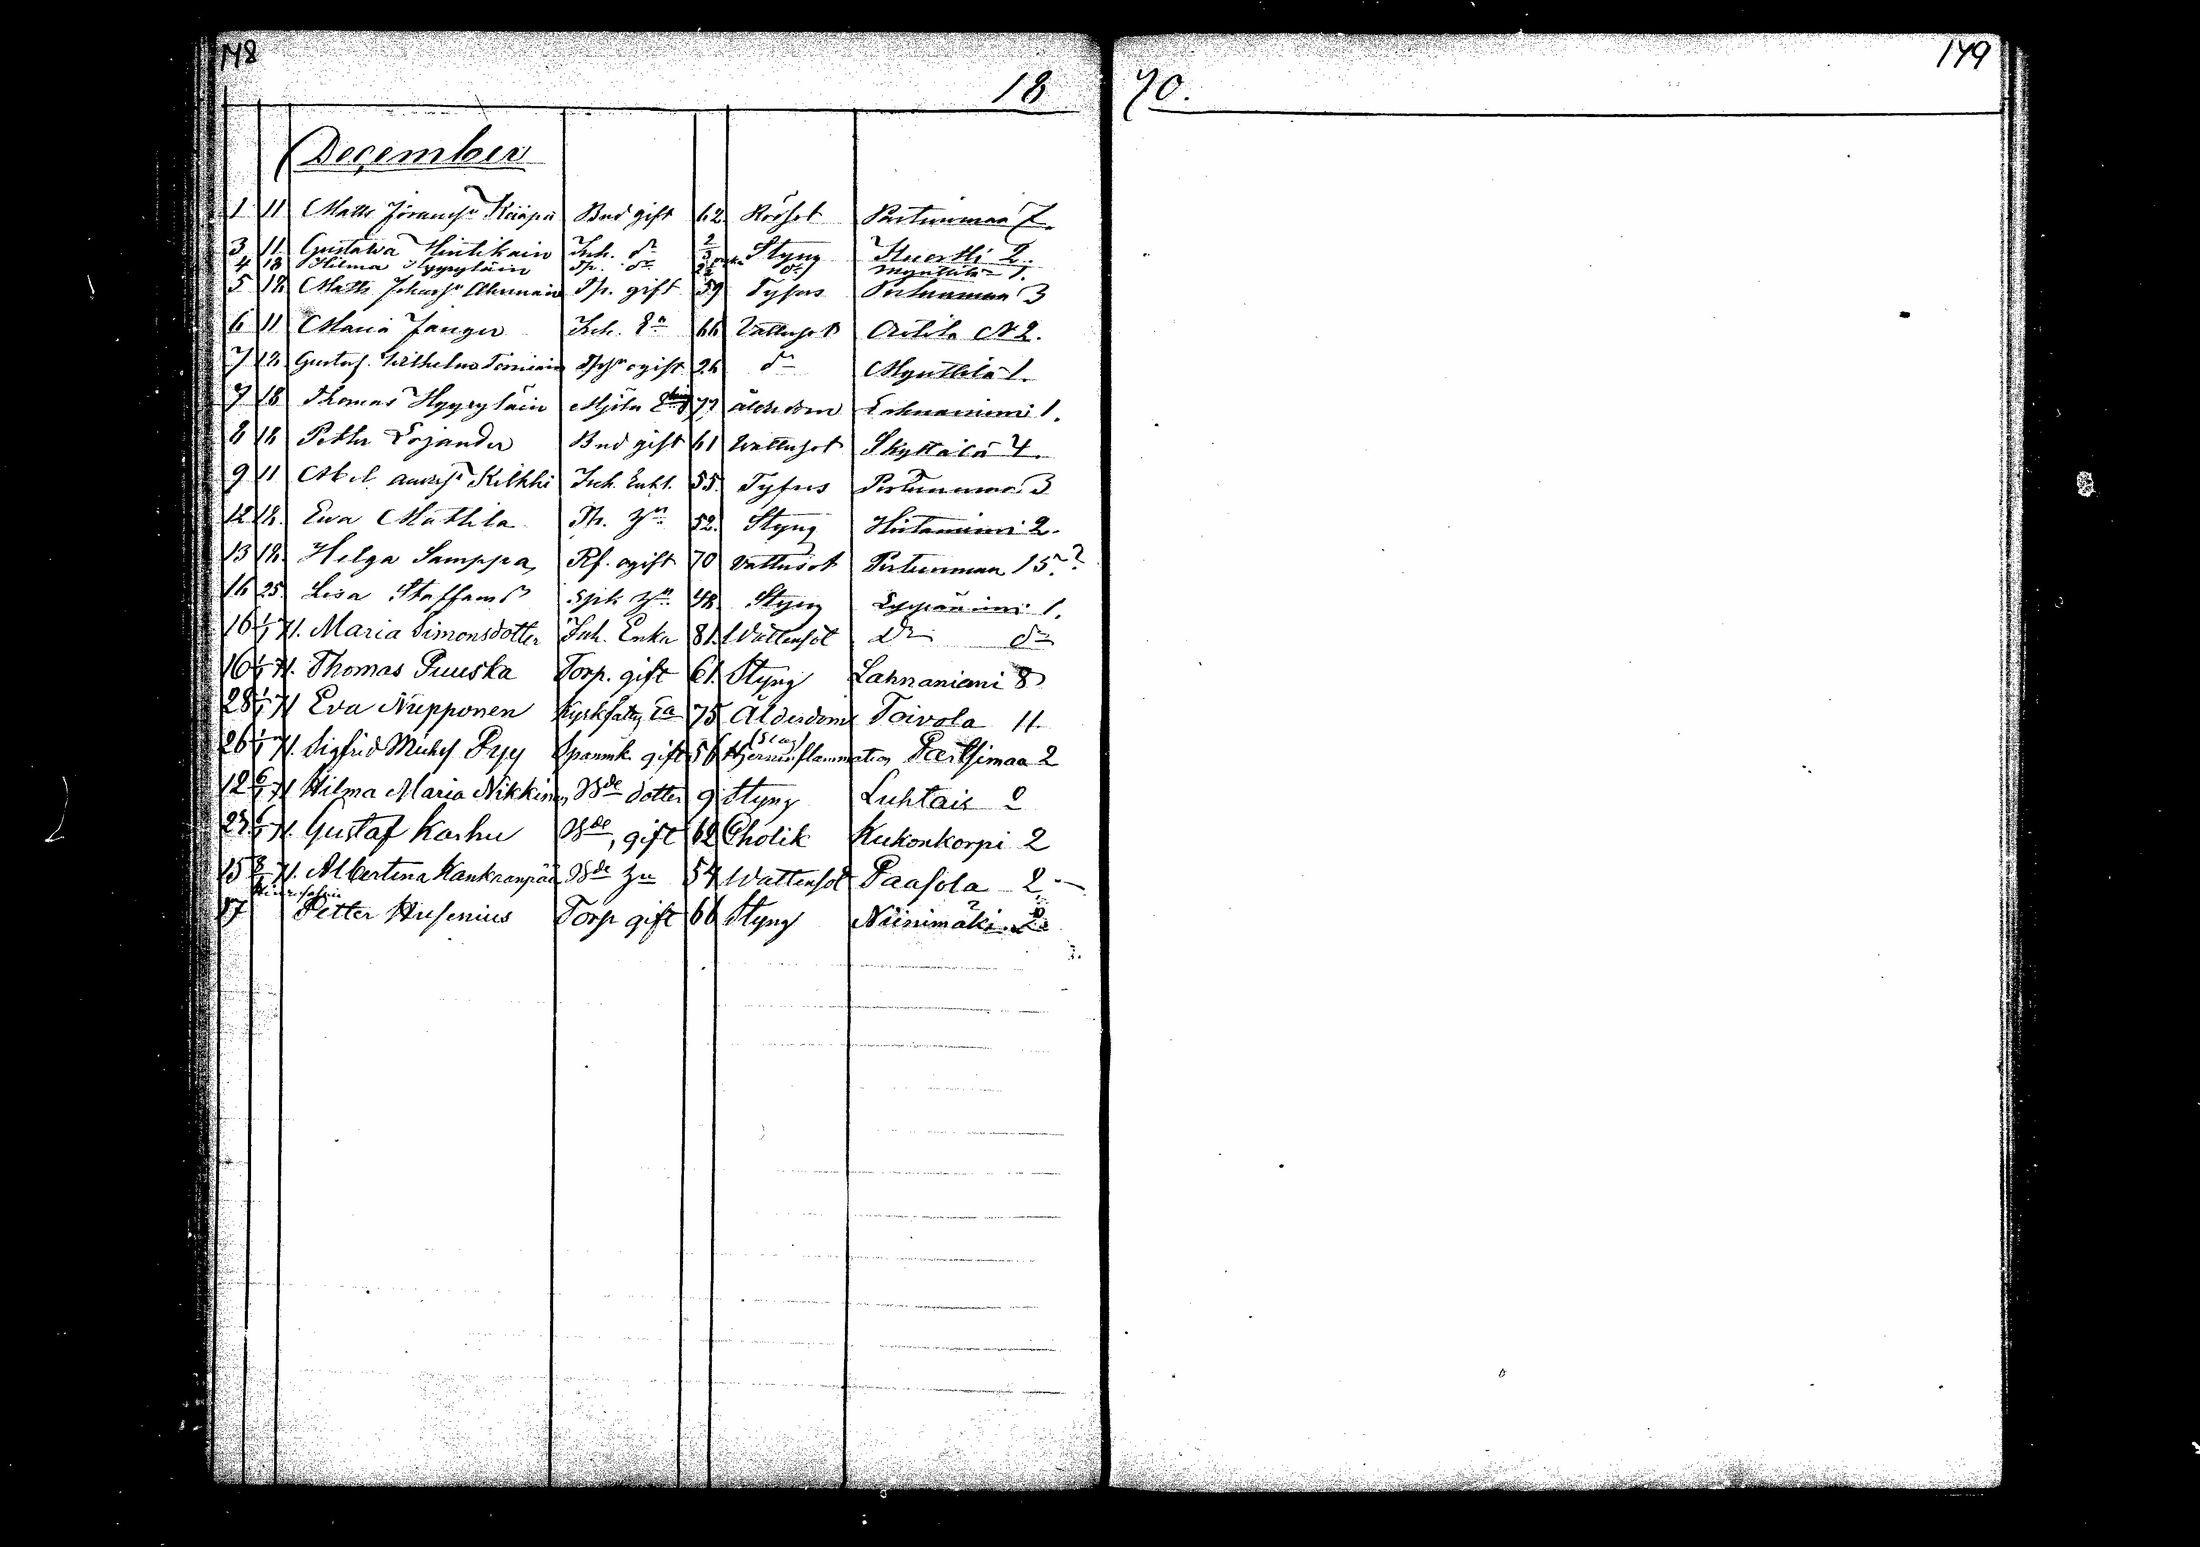 148
149
18 70.
December
1 11 Matts Kääpä Bnd gift 62 Rödsot Pertunmaa 7.
3 11 Gustava Hintikain Inh. dr Styng Kuortti 2.
4 18 Hilma Hyyryläin Tp. dr dº Mynttilä 1.
5 18 Matts Johansn Ahonain Tp. gift 59 Tyfus Pertunmaa 3
6 11 Maria Janger Inh. Ea 66 Vattusot N 2.
7 18 Gustaf Wilhelm Torniain ogift 26 dº Mynttilä 1.
7 18 Thomas Hyyryläin Mjöln 77 ålderdom Lahnaniemi 1.
8 18 Petter Lojander Bnd gift 61 Vattusot Skyttälä 4.
9 11 Abel Kilkki Inh. Enkl. 55. Tyfus Pertunmaa 3
12 18. Eva Mattila Th. 52. Styng Hirtaniemi 2.
13 18. Helga Samppa, Rf. ogift 70 Vattusot Pertunmaa 15.?
16 25. Lisa Staffansdr 48. Styng 1.
16 1/1 71. Maria Simonsdotter Inh. Enka 81. Wattensot Dº dº
16 1/1 71. Thomas Puuska Torp. gift 61. Styng Lahnaniemi 8
28 1/1 71 Eva Nupponen Kyrkfattig Ea 75 Ålderdom Toivola 11.
26 1/1 71. Sigfrid Michelss Pyy Spannk. gift 56 (Slag) Hjerninflammation Pärtsimaa 2
12 6/1 71 Hilma Maria Nikkinen, Bde dotter 9 Styng Luhtais 2
27. 6/1 71. Gustaf Karhu Bde, gift 62 Cholik Kukonkorpi 2
15 8/1 71. Albertina Kankaanpää Bde 54 Wattensot Paasola 2.
17 Petter Husenius Torp gift 66 Styng Niinimäki